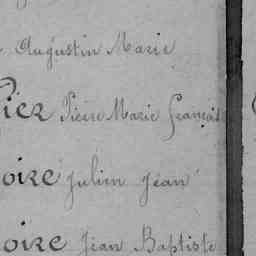 Augustin Marie
ier Pierre Marie François
oire Julien Jean
oire Jean Baptiste